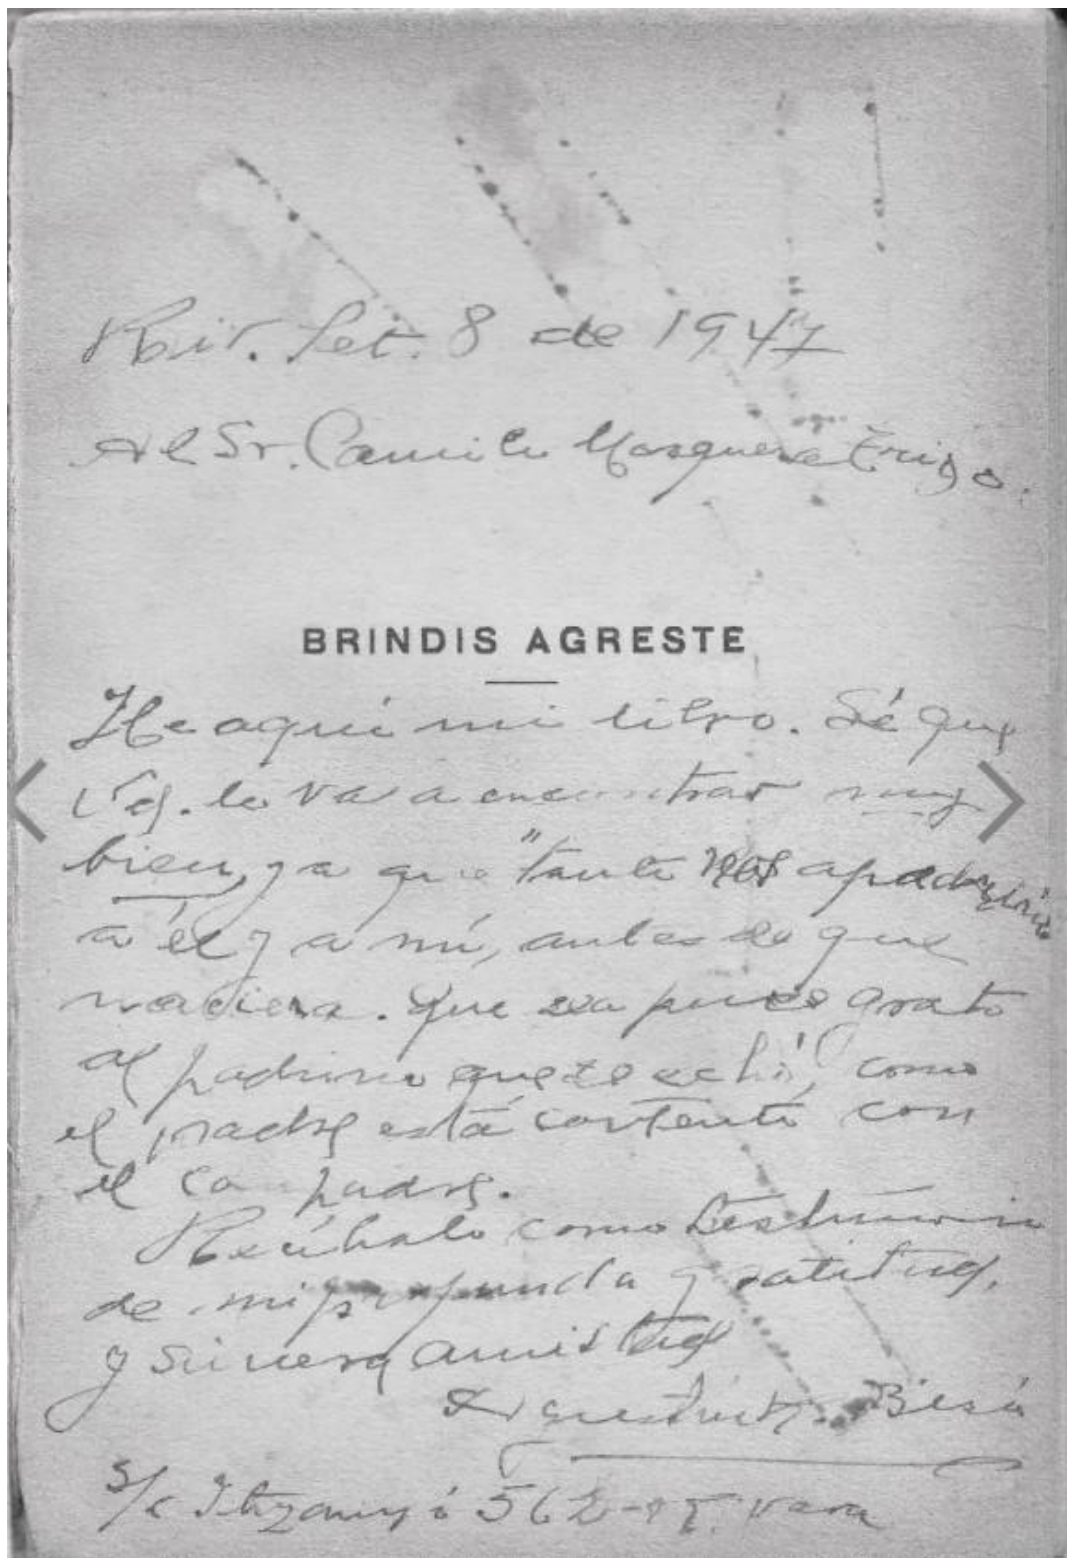 Riv. Set. 8 de 1947
Al Sr. Camilo Mosquera Trigo.
BRINDIS AGRESTE
He aquí mi libro. Sé que
Vd. lo va a encontrar muy
bien, ya que "tanto nos apadrinó
a él y a mí, antes de que
naciera. Que sea pues grato
al padrino que se echó", como
el padre está contento con
el compadre.
Recíbalo como testimonio
de mi profunda gratitud,
y sincera amistad
Bisio
S/c Ituzaingó 562